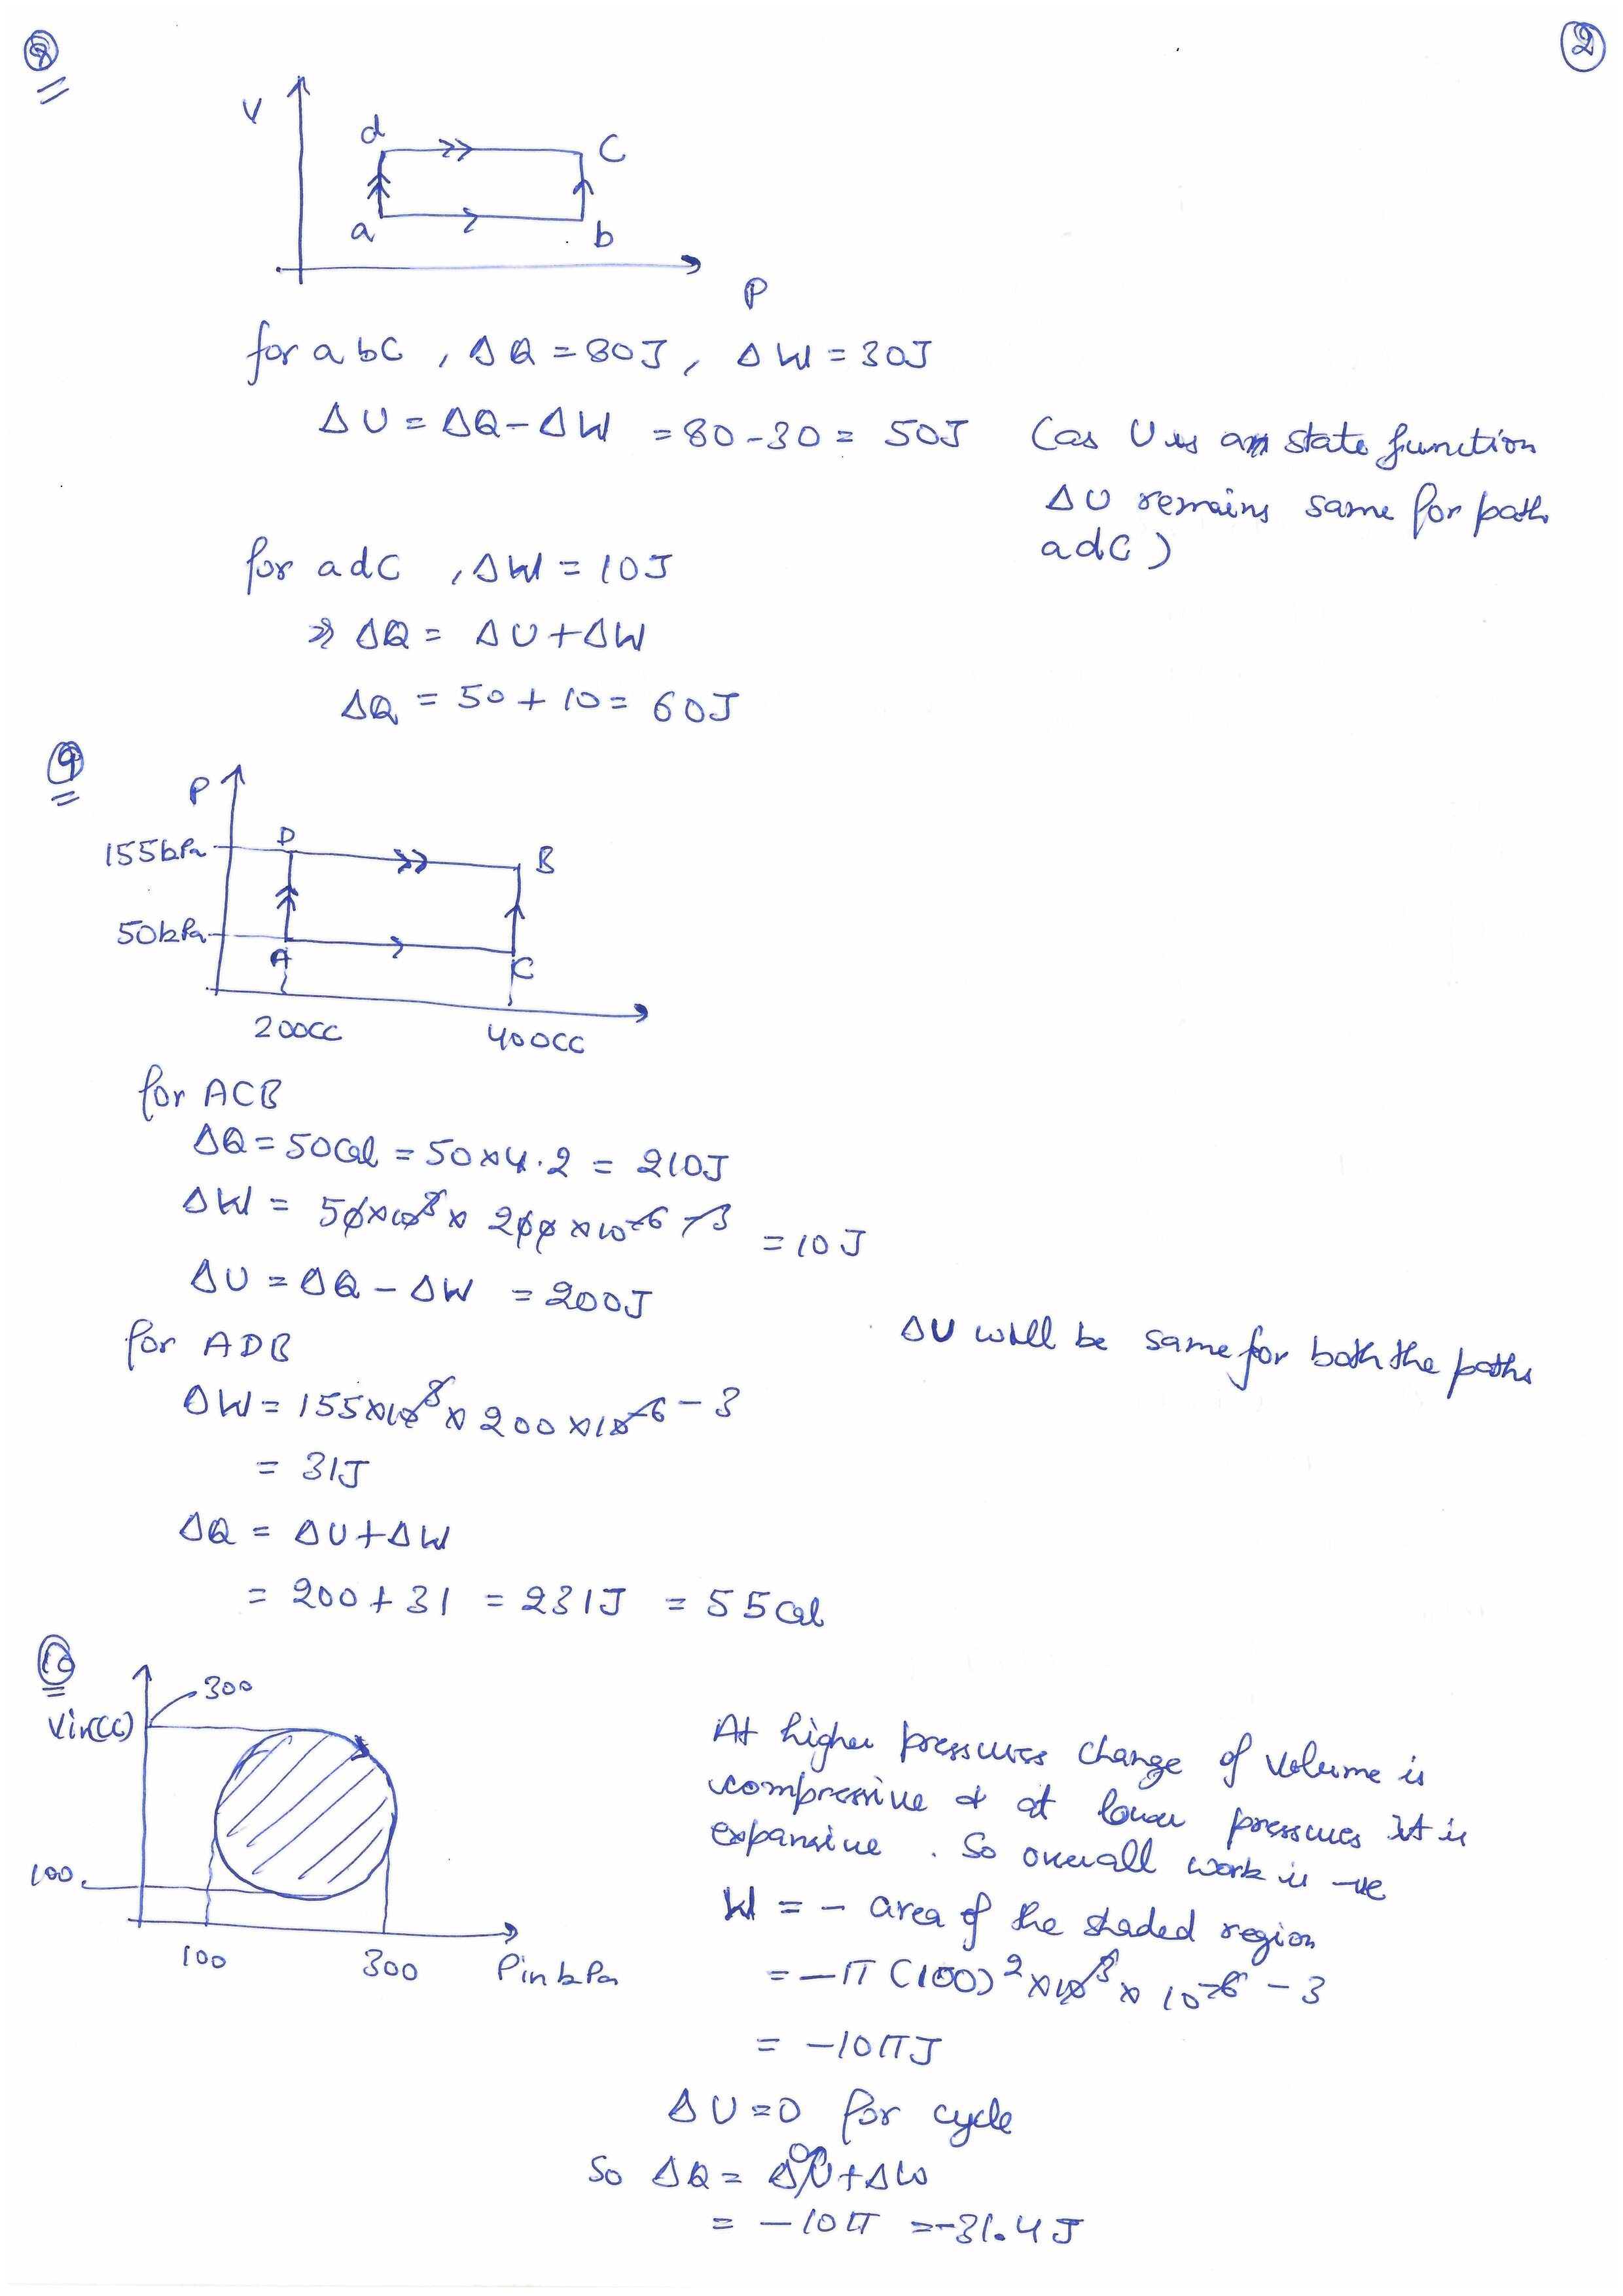 8
2
V
d
C
a
b
P
for abC , ΔQ = 80J, ΔW = 30J
ΔU = ΔQ - ΔW = 80-30 = 50J (as U is an state function
ΔU remains same for path
adC)
for adC , ΔW = 10J
⇒ ΔQ = ΔU + ΔW
ΔQ = 50 + 10 = 60J
9
P
155kPa
D
B
50kPa
A
C
200cc
400cc
for ACB
ΔQ = 50Cal = 50×4.2 = 210J
ΔW = 50×10³ × 200×10⁻⁶ ⁻³ = 10J
ΔU = ΔQ - ΔW = 200J
for ADB
ΔU will be same for both the paths
ΔW = 155×10³ × 200×10⁻⁶ ⁻³
= 31J
ΔQ = ΔU + ΔW
= 200 + 31 = 231J = 55Cal
10
300
Vin(CC)
100
100
300
P in kPa
At higher pressures change of volume is
compressive & at lower pressures it is
expansive . So overall work is -ve
W = - area of the shaded region
= -π(100)² ×10³ × 10⁻⁶ ⁻³
= -10πJ
ΔU=0 for cycle
So ΔQ = ΔU⁰ + ΔW
= -10π = -31.4J